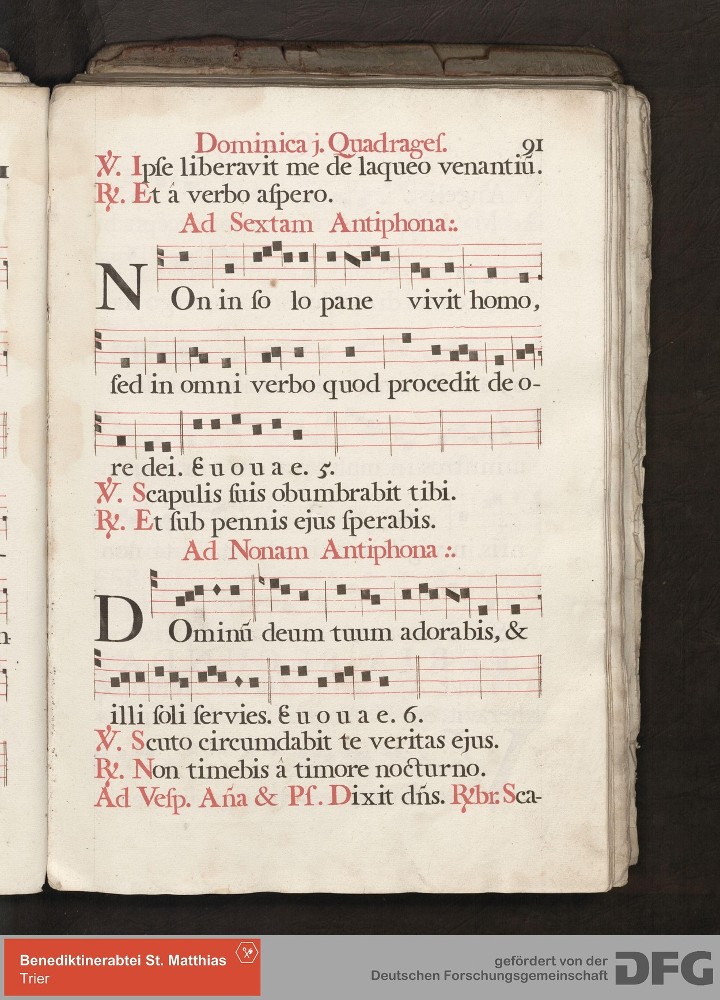 Dominica j. Quadrageſ. 91
℣. Ipſe liberavit me de laqueo venantiū.
℟. Et â verbo aſpero.
Ad Sextam Antiphona:.
NOn in ſo lo pane vivit homo,
ſed in omni verbo quod procedit de o-
re dei. E u o u a e. 5.
℣. Scapulis ſuis obumbrabit tibi.
℟. Et ſub pennis ejus ſperabis.
Ad Nonam Antiphona :.
DOminū deum tuum adorabis, &
illi ſoli ſervies. E u o u a e. 6.
℣. Scuto circumdabit te veritas ejus.
℟. Non timebis â timore nocturno.
Ad Veſp. Aña & Pſ. Dixit dñs. ℟br: Sca-
Benediktinerabtei St. Matthias
Trier
gefördert von der
Deutschen Forschungsgemeinschaft
DFG